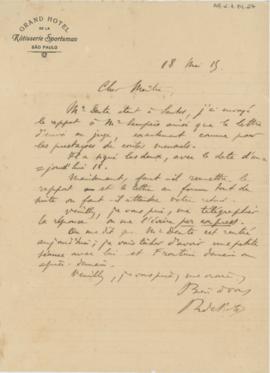 GRAND HOTEL
DE LA
Rôtisserie Sportsman
SÃO PAULO
18 Mai 15
Cher Maître,
Mr Dente étant à Santos, j'ai envoyé
le rapport à Mr Sampaio ainsi que la lettre
d'envoi au juge, exactement comme pour
les prestações de contes
les deux, avec la date d'au-
jourd'hui 18.
Maintenant, faut-il remettre le
rapport et la lettre au forum tout de
suite ou faut-il attendre votre retour.
Veuillez, je vous prie, me télégraphier
la réponse ou me l'écrire par exprès.
On me dit que Mr Dente est rentré
aujourd'hui; je vais tâcher d'avoir une petite
séance avec lui et Frontini demain ou
après-demain.
Veuillez, je vous prie, me croire,
Bien à vous